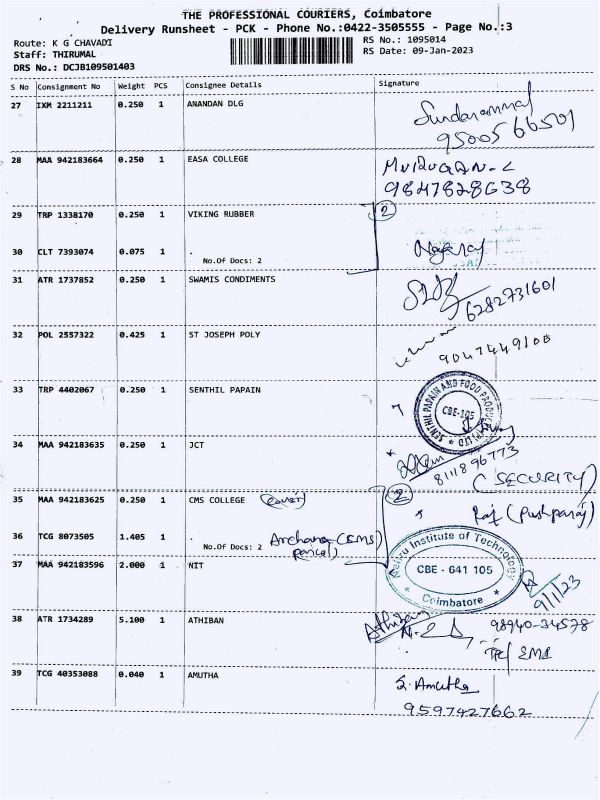 THE PROFESSIONAL COURIERS, Coimbatore
Delivery Runsheet - PCK - Phone No.:0422-3505555 - Page No.:3
Route: K G CHAVADI
RS No.: 1095014
Staff: THIRUMAL
RS Date: 09-Jan-2023
DRS No.: DCJB109501403
S No Consignment No Weight PCS Consignee Details Signature
27 IXM 2211211 0.250 1 ANANDAN DLG
Sundarammal
9500566501
28 MAA 942183664 0.250 1 EASA COLLEGE
MURUGAN.C
9847828638
29 TRP 1338170 0.250 1 VIKING RUBBER
2
30 CLT 7393074 0.075 1 .
No.Of Docs: 2
Nagaraj
31 ATR 1737852 0.250 1 SWAMIS CONDIMENTS
6282731601
32 POL 2557322 0.425 1 ST JOSEPH POLY
9047449100
33 TRP 4402067 0.250 1 SENTHIL PAPAIN
SENTHIL PAPAIN AND FOOD PRODUCTS (P) LTD
CBE-105
34 MAA 942183635 0.250 1 JCT
8111896773
(SECURITY)
35 MAA 942183625 0.250 1 CMS COLLEGE (cover)
2
Raj (Pushparaj)
36 TCG 8073505 1.405 1 .
No.Of Docs: 2
Archana (EMS)
parcel)
37 MAA 942183596 2.000 1 NIT
Nehru Institute of Technology
CBE - 641 105
Coimbatore
9/1/23
38 ATR 1734289 5.100 1 ATHIBAN
Athiban
98940-34578
39 TCG 40353088 0.040 1 AMUTHA
S. Amutha
9597427662